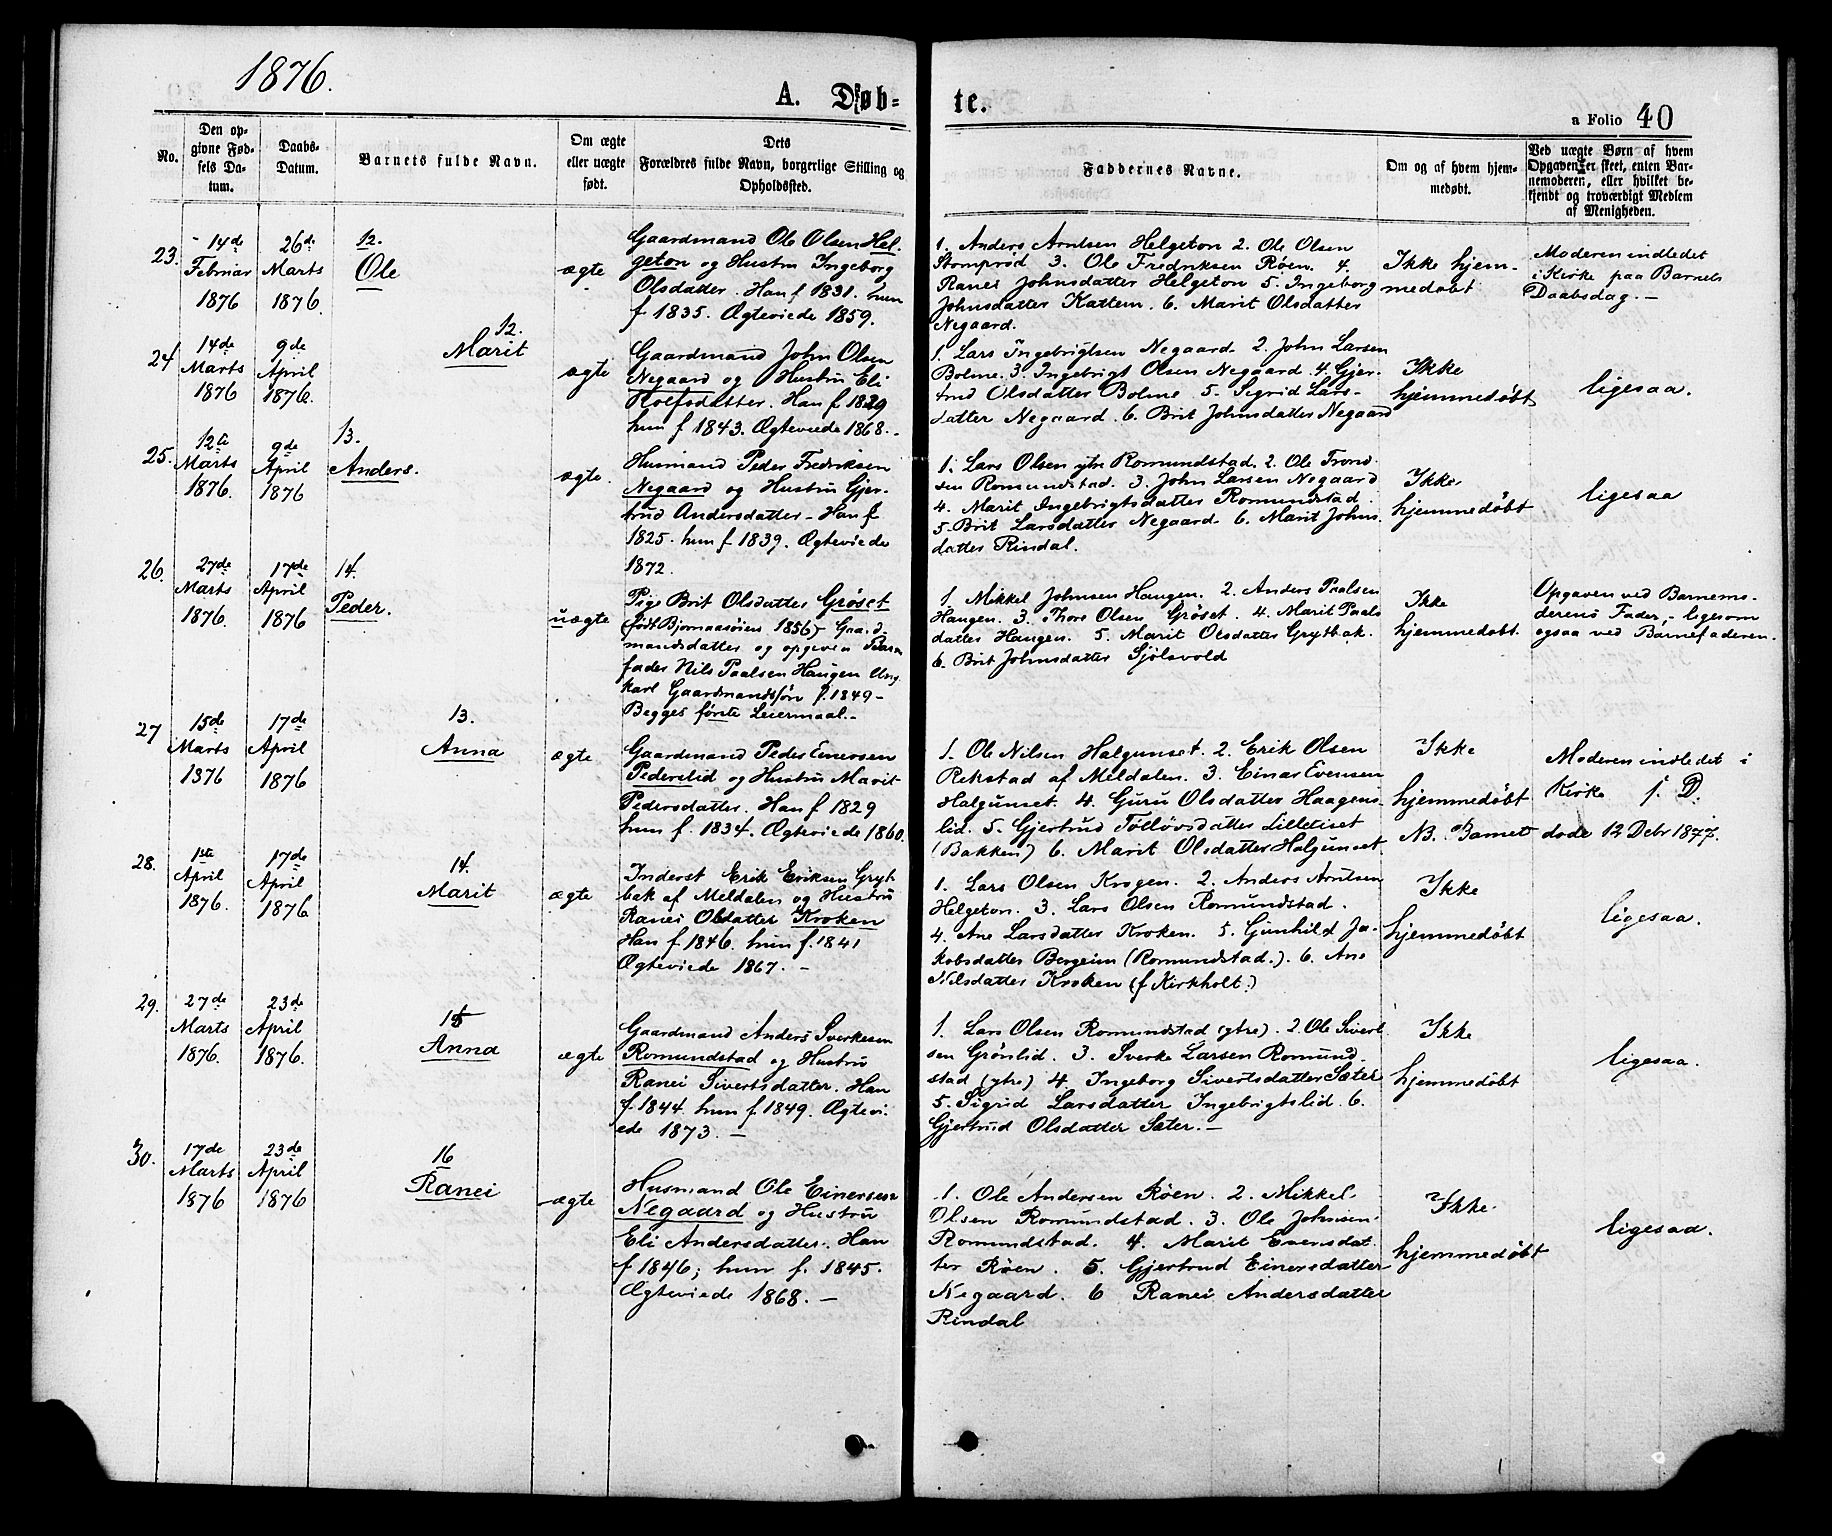 1876.
A. Døb-
te.
a Folio 40
No.
Den op-
givne Fød-
sels Da-
tum.
Daabs-
Datum.
Barnets fulde Navn.
Om ægte
eller uægte
født.
Dets
Forældres fulde Navn, borgerlige Stilling og
Opholdssted.
Faddernes Navne.
Om og af hvem hjem-
medøbt.
Ved uægte Børn af hvem
Opgaven er skeet, enten Bar-
nemoderen, eller hvilket be-
kjendt og troværdigt Medlem
af Menigheden.
23.
14de
Februar
1876
26de
Marts
1876.
12.
Ole
ægte
Gaardmand Ole Olsen Hel-
geton og Hustru Ingeborg
Olsdatter. Han f 1831. hun
f 1835. Ægteviede 1859.
1. Anders Arntsen Helgeton 2. Ole Olsen
Stomprød 3. Ole Fredriksen Røen. 4.
Ranei Johnsdatter Helgeton 5. Ingeborg
Johnsdatter Kattem. 6. Marit Olsdatter
Negaard.
Ikke hjem-
medøbt
Moderen indledet
i Kirke paa Barnets
Daabsdag. -
24
14de
Marts
1876
9de
April
1876.
12.
Marit
ægte
Gaardmand John Olsen
Negaard og Hustru Eli
Rolfsdatter. Han f 1829
hun f 1843. Ægteviede 1868. -
1. Lars Ingebrigtsen Negaard. 2. John Larsen
Bolme. 3. Ingebrigt Olsen Negaard. 4. Gjer-
trud Olsdatter Bolme. 5. Sigrid Lars-
datter Negaard. 6. Brit Johnsdatter Negaard
Ikke
hjemmedøbt
ligesaa.
25.
12te
Marts
1876.
9de
April
1876
13.
Anders.
ægte.
Husmand Peder Fredriksen
Negaard og Hustru Gjer-
trud Andersdatter - Han f
1825. hun f 1839. Ægteviede
1872.
1. Lars Olsen ytre Romundstad. 2. Ole Trond-
sen Romundstad. 3. John Larsen Negaard
4. Marit Ingebrigtsdatter Romundstad.
5. Brit Larsdatter Negaard. 6. Marit Johns-
datter Rindal.
Ikke
hjemmedøbt
ligesaa
26.
27de
Marts
1876.
17de
April
1876
14.
Peder.
uægte
Pige Brit Olsdatter Grøset
født Bjørnaasøien 1856) - Gaard
mandsdatter og opgiven Barn
fader Nils Paalsen Haugen Ung
karl Gaardmandssøn f. 1849 -
Begges første Leiermaal. -
1. Mikkel Johnsen Haugen. 2. Anders Paalsen
Haugen. 3. Thore Olsen Grøset. 4. Marit Paals
datter Haugen. 5. Marit Olsdatter Grytbak.
6. Brit Johnsdatter Sjølsvold
Ikke
hjemmedøbt.
Opgaven ved Barnemo-
derens Fader, - ligesom
ogsaa ved Barnefaderen.
27
15de
Marts
1876
17de
April
1876
13.
Anna
ægte
Gaardmand Peder Einersen
Pederslid og Hustru Marit
Pedersdatter. Han f 1829
hun f. 1834. Ægteviede 1860.
1. Ole Nilsen Halgunset. 2. Erik Olsen
Rekstad af Meldalen. 3. Einar Evensen
Halgunset. 4. Guru Olsdatter Haagens-
lid. 5. Gjertrud Tølløvsdatter Lilletiset
(Bakken) 6. Marit Olsdatter Halgunset
Ikke
hjemmedøbt
Moderen indledet i
Kirke s. D.
NB. Barnet døde 12 Debr 1877.
28.
1ste
April
1876.
17de
April
1876
14.
Marit
ægte
Inderst Erik Eriksen Gryt-
bak af Meldalen og Hustru
Ranei Olsdatter Kroken
Han f 1846. hun f. 1841
Ægteviede 1867. -
1. Lars Olsen Krogen. 2. Anders Arntsen
Helgeton. 3. Lars Olsen Romundstad.
4. Ane Larsdatter Kroken. 5. Gunhild Ja-
kobsdatter Bergeim (Romundstad.). 6. Ane
Nilsdatter Kroken (f Kirkholt.)
Ikke
hjemmedøbt
ligesaa.
29.
27de
Marts
1876.
23de
April
1876.
15
Anna
ægte
Gaardmand Anders Sverkesen
Romundstad og Hustru
Ranei Sivertsdatter. Han
f. 1844. hun f. 1849. Ægtevi-
ede 1873. -
1. Lars Olsen Romundstad (ytre). 2. Ole Sivert
sen Grønlid. 3. Sverke Larsen Romund-
stad (ytre) 4. Ingeborg Sivertsdatter Sæter
5. Sigrid Larsdatter Ingebrigtslid. 6.
Gjertrud Olsdatter Sæter. -
Ikke
hjemmedøbt
ligesaa.
30.
17de
Marts
1876
23de
April
1876
16
Ranei
ægte
Husmand Ole Einersen
Negaard og Hustru
Eli Andersdatter. Han
f 1846; hun f. 1845.
Ægteviede 1868. -
1. Ole Andersen Røen. 2. Mikkel
Olsen Romundstad. 3. Ole Johnsen
Romundstad. 4. Marit Evensdat-
ter Røen. 5. Gjertrud Einersdatter
Negaard. 6 Ranei Andersdatter
Rindal
Ikke
hjemmedøbt
ligesaa.